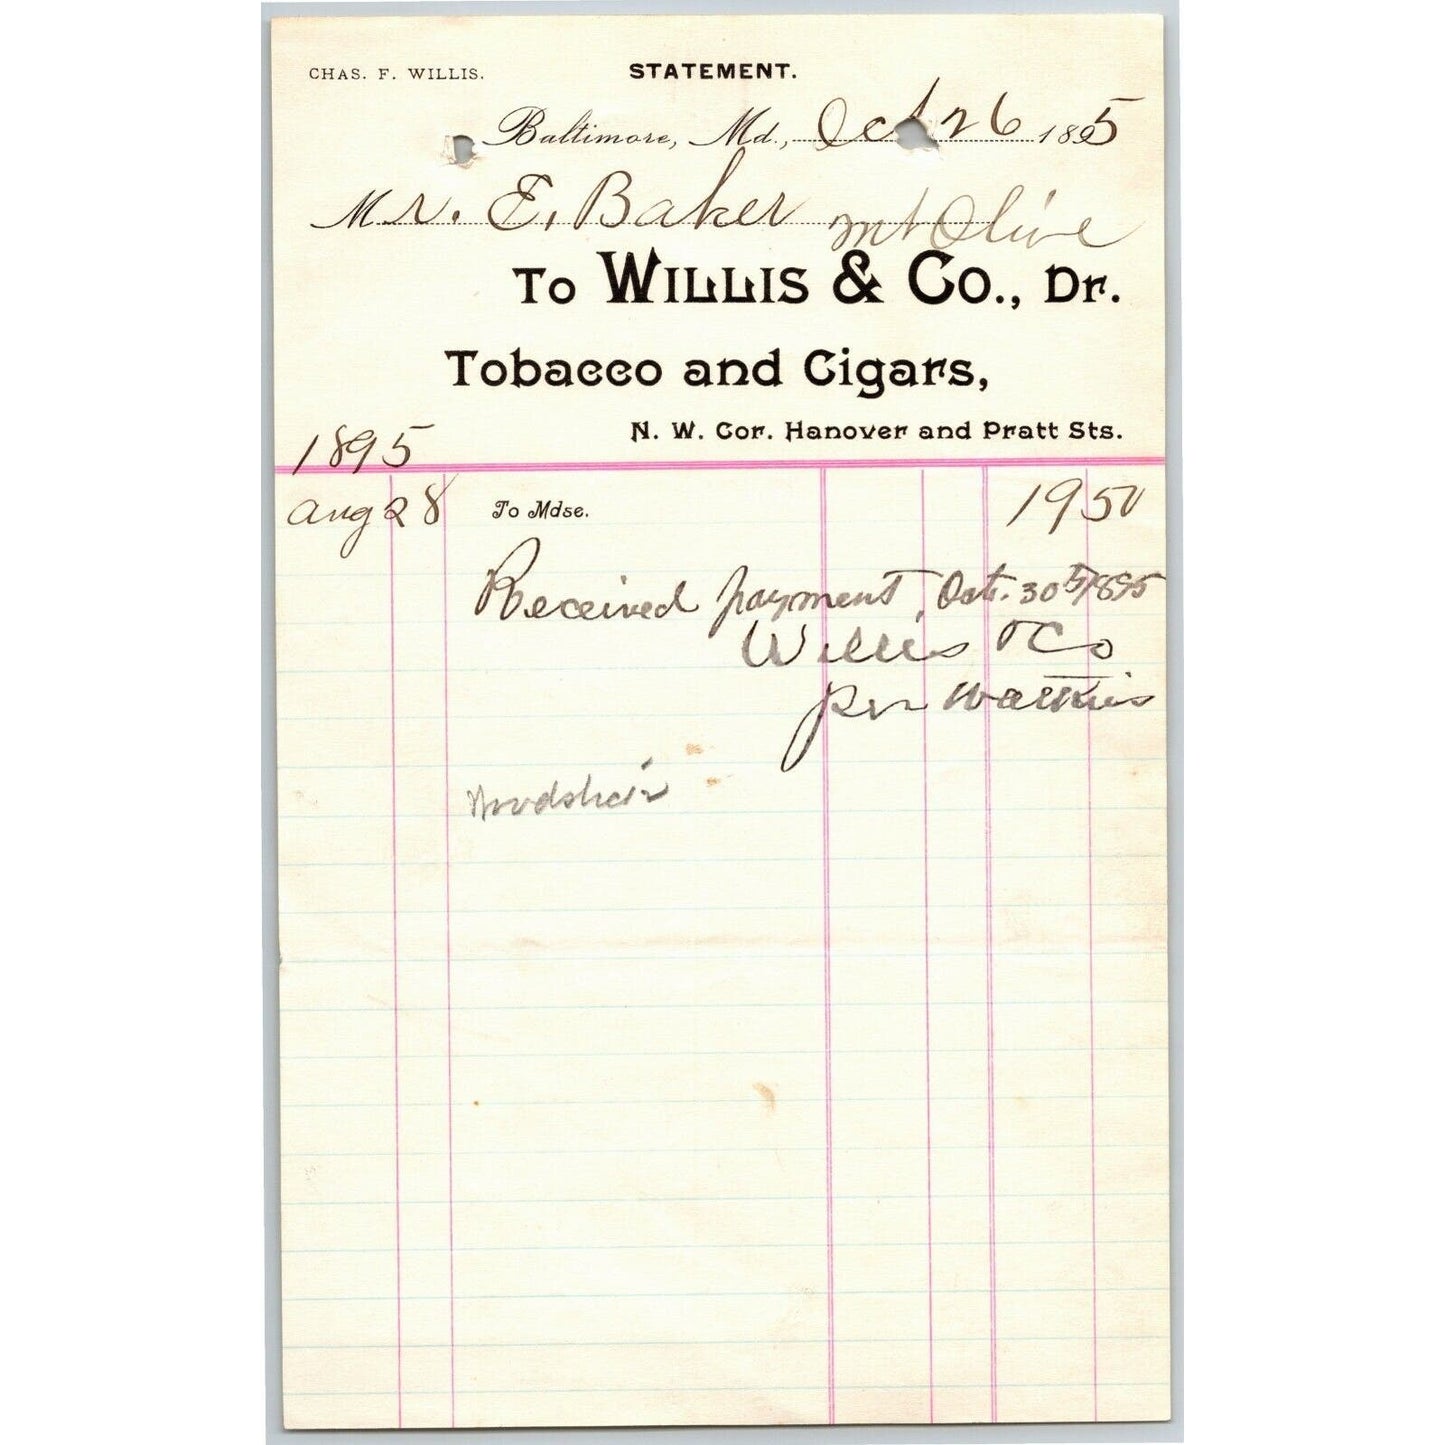 CHAS. F. WILLIS.
STATEMENT.
Baltimore, Md., Oct 26 1895
Mr. E. Baker Mt Olive
To WILLIS & Co., Dr.
Tobacco and Cigars,
N. W. Cor. Hanover and Pratt Sts.
1895
Aug 28 To Mdse. 19 50
Received payment, Oct. 30th/1895
Willis & Co
per Watkins